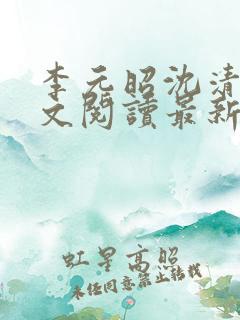 李元昭沈清
文閱讀最新
虹星高照
未经同意禁止转载